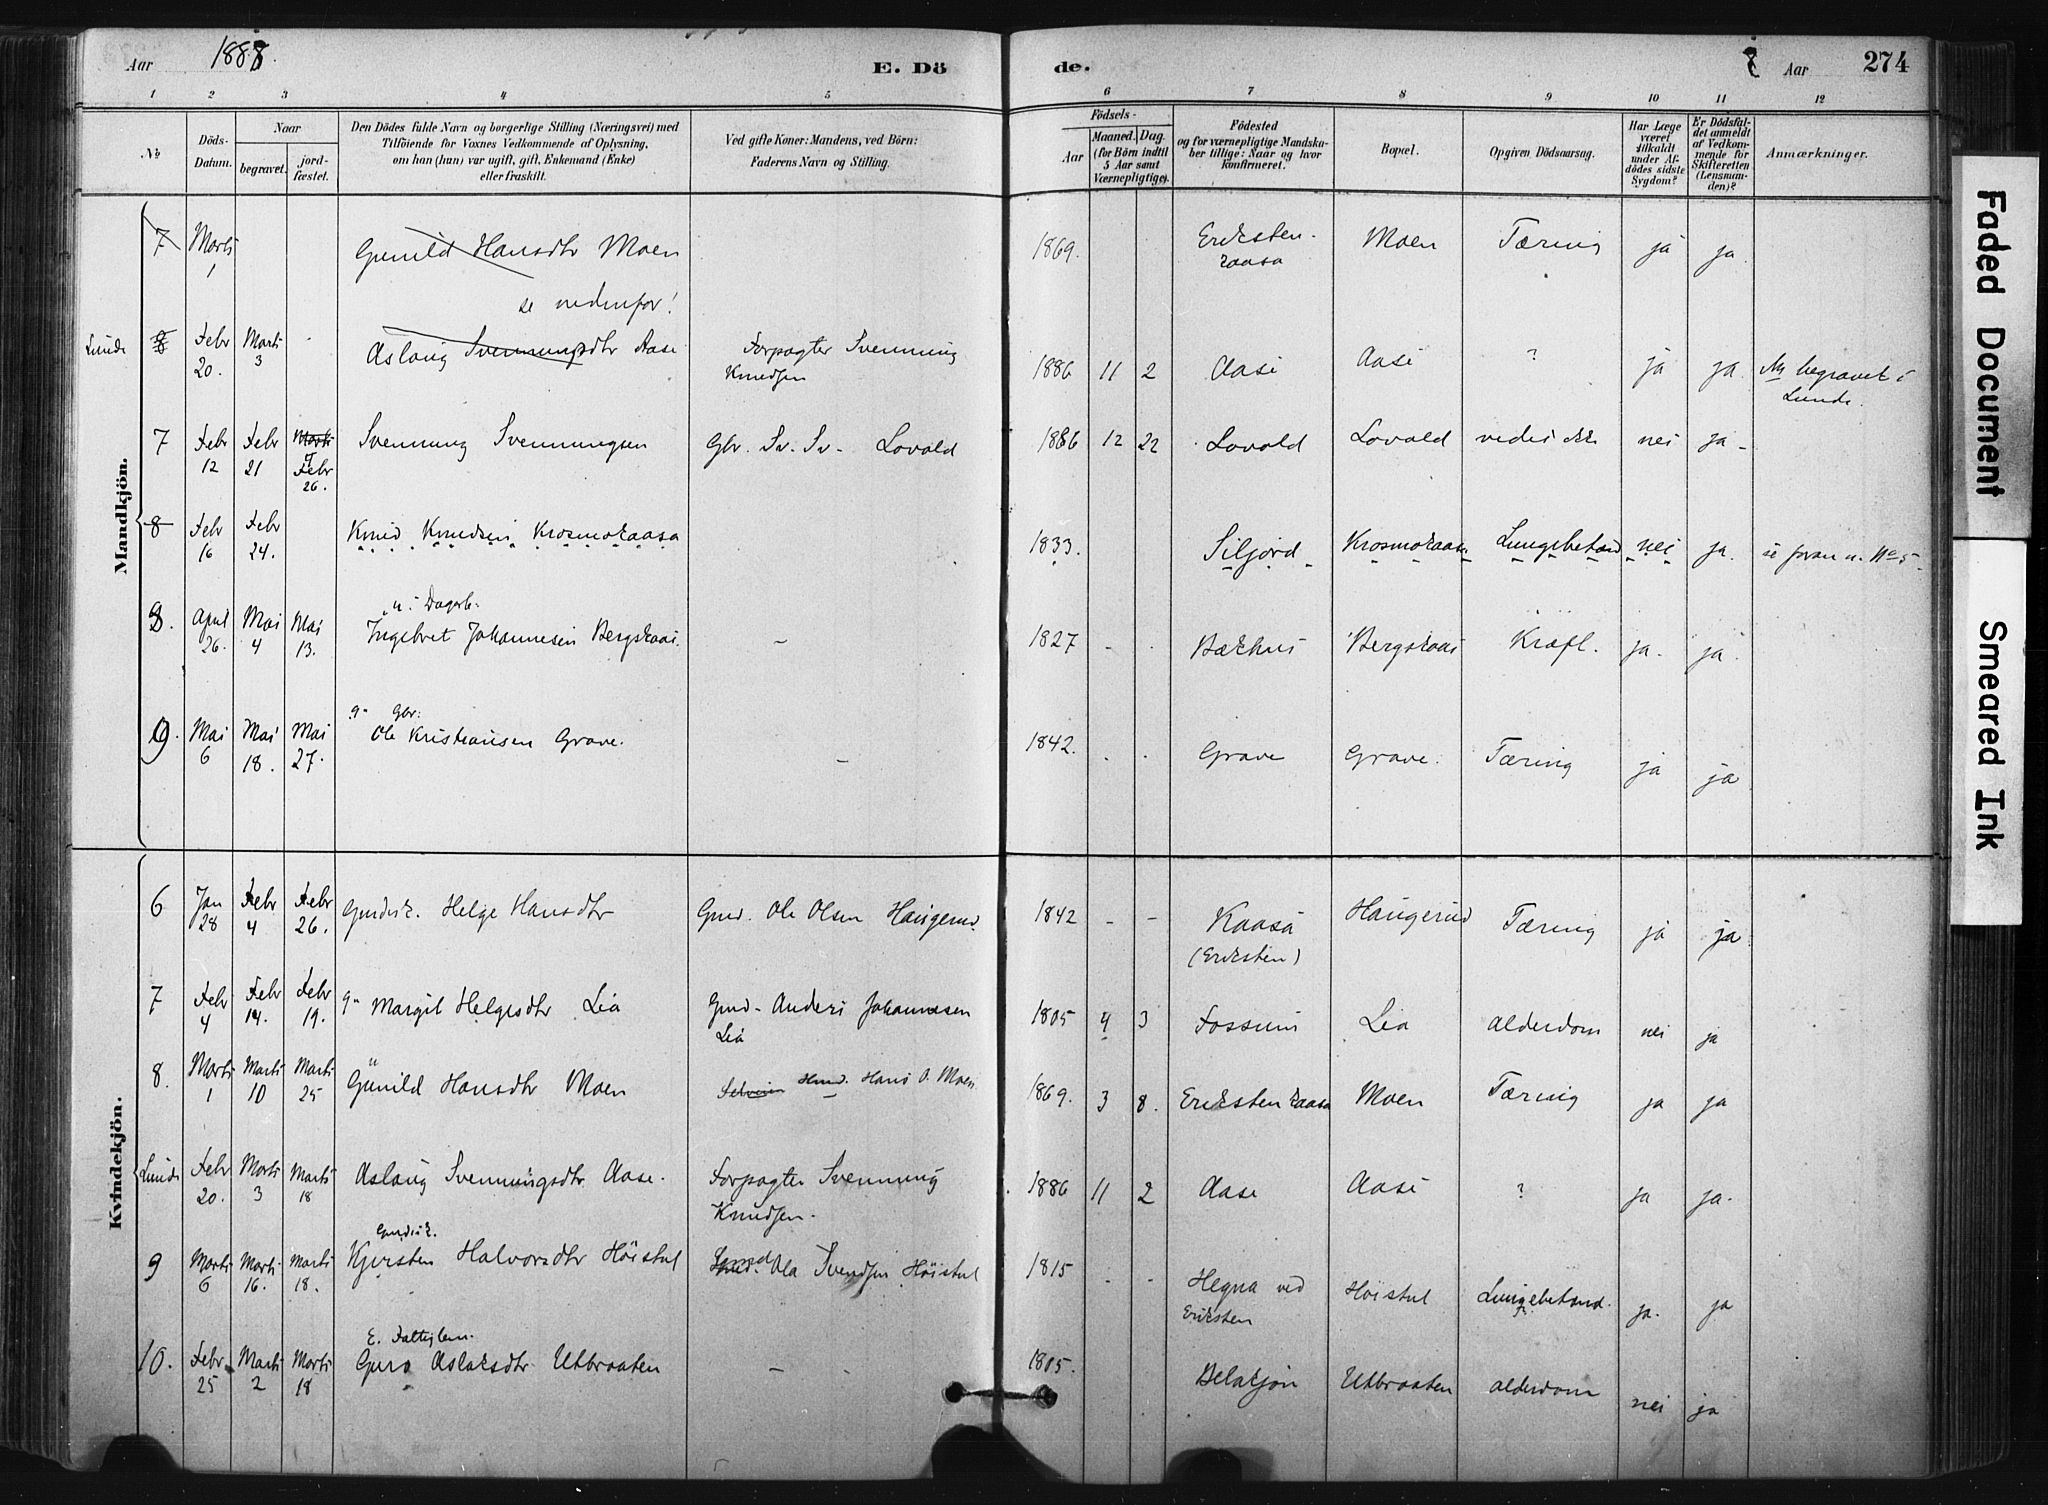 1888.
Aar
E. Dö de.
8 Aar 274
1 2 3 4 5 6 7 8 9 10 11 12
No
Döds-Datum.
Naar
begravet.
jord-fæstet.
Den Dödes fulde Navn og borgerlige Stilling (Næringsvei) med
Tilföiende for Voxnes Vedkommende af Oplysning,
om han (hun) var ugift, gift, Enkemand (Enke)
eller fraskilt.
Ved gifte Koner: Mandens, ved Börn:
Faderens Navn og Stilling.
Födsels-
Aar
Maaned. Dag.
(for Börn indtil
5 Aar samt
Værnepligtige).
Födested
og for værnepligtige Mandska-
ber tillige: Naar og hvor
konfirmeret.
Bopæl.
Opgiven Dödsaarsag.
Har Læge
været
tilkaldt
under Af-
dödes sidste
Sygdom?
Er Dödsfal-
det anmeldt
af Vedkom-
mende for
Skifteretten
(Lensman-
den)?
Anmærkninger.
Mandkjön.
7 Marts 1 Gunild Hansdtr Moen 1869. Eriksten-kaasa Moen Tæring ja ja.
se nedenfor!
Lunde 8 Febr 20. Marts 3 Aslaug Svenningsdtr Aase Forpagter Svenning Knudsen 1886 11 2 Aase Aase ? ja ja. begravet i Lunde.
7 Febr 12 Febr 21 Marts Febr 26. Svenning Svenningsen Gbr. Sv. Sv. Lovald 1886 12 22 Lovald Lovald vedes ikke nei ja
8 Febr 16 Febr 24. Knud Knudsen Krosmokaasa 1833. Siljord Krosmokaasa Lungebetænd nei ja. se foran u. No 5.
8. April 26. Mai 4 Mai 13. Ingebret Johannesen Bergskaas. - 1827 - . Bækhus Bergskaas Kræft. ja. ja.
9. Mai 6 Mai 18. Mai 27. g. Gbr: Ole Kristiansen Grave. - 1842. . . Grave Grave. Tæring ja ja
Kvindekjön.
6 Jan 28 Febr 4 Febr 26. Helge Hansdtr Gmd. Ole Olsen Haugerud. 1842 - - Kaasa (Eriksten) Haugerud Tæring ja ja
7 Febr 4 Febr 14. Febr 19. g. Margit Helgesdtr Lia Gmd. Anders Johannesen Lia 1805 4 3 Fossum Lia alderdom nei ja
8. Marts 1 Marts 10 Marts 25 Gunild Hansdtr Moen Hmd. Hans O. Moen. 1869. 3 8. Erikstenkaasa Moen Tæring ja ja
Lunde Febr 20. Marts 3 Marts 18 Aslaug Svenningsdtr Aase. Forpagter Svenning Knudsen. 1886 11 2 Aase Aase ? ja ja.
9 Marts 6 Marts 16. Marts 18. Kjersten Halvorsdtr Höistul Ola Svendsen Höistul 1815 - - Hegna ved Eriksten Höistul Lungebetænd. ja. ja
10. Febr 25 Marts 2 Marts 18 E. Fattiglem. Guro Aslaksdtr Utbraaten - - 1805. Utbraaten alderdom nei ja
Faded Document
Smeared Ink